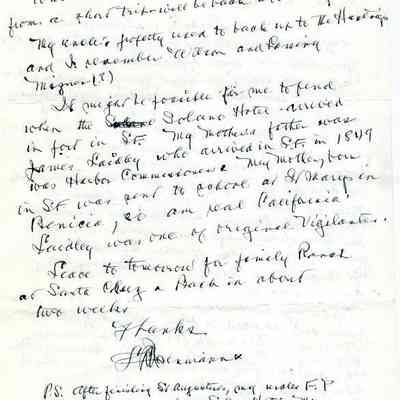 from a short trip will be back
My uncle's property used to back up to the Hastings
and I remember Wilson and Lansing
Mizner (?)
It might be possible for me to find
when the Solano Hotel arrived
in fort in S.F. My mothers father was
James Laidley who arrived in S.F. in 1849
was Harbor Commissioner. My Mother, born
in S.F. was sent to school at St Marys in
Benicia, so am real California.
Laidley was one of original Vigilantes.
Leave to tomorrow for family Ranch
at Santa Cruz & Back in about
two weeks
Thanks
P.S. After finishing St Augustine, my uncle F.P.